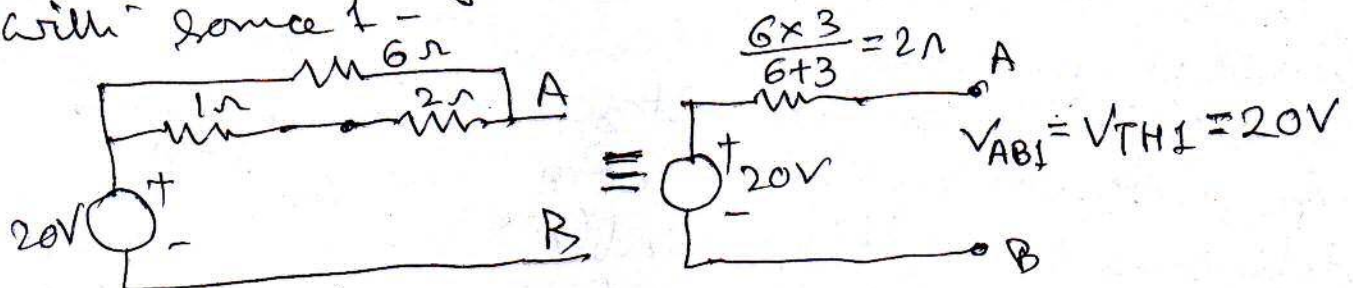 with source 1 -
6Ω
1Ω 2Ω A
20V + -
B
≡
6×3/6+3 = 2Ω A
+ 20V -
V_AB1 = V_TH1 = 20V
B